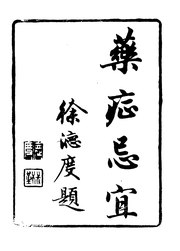 藥症忌宜
徐德度題